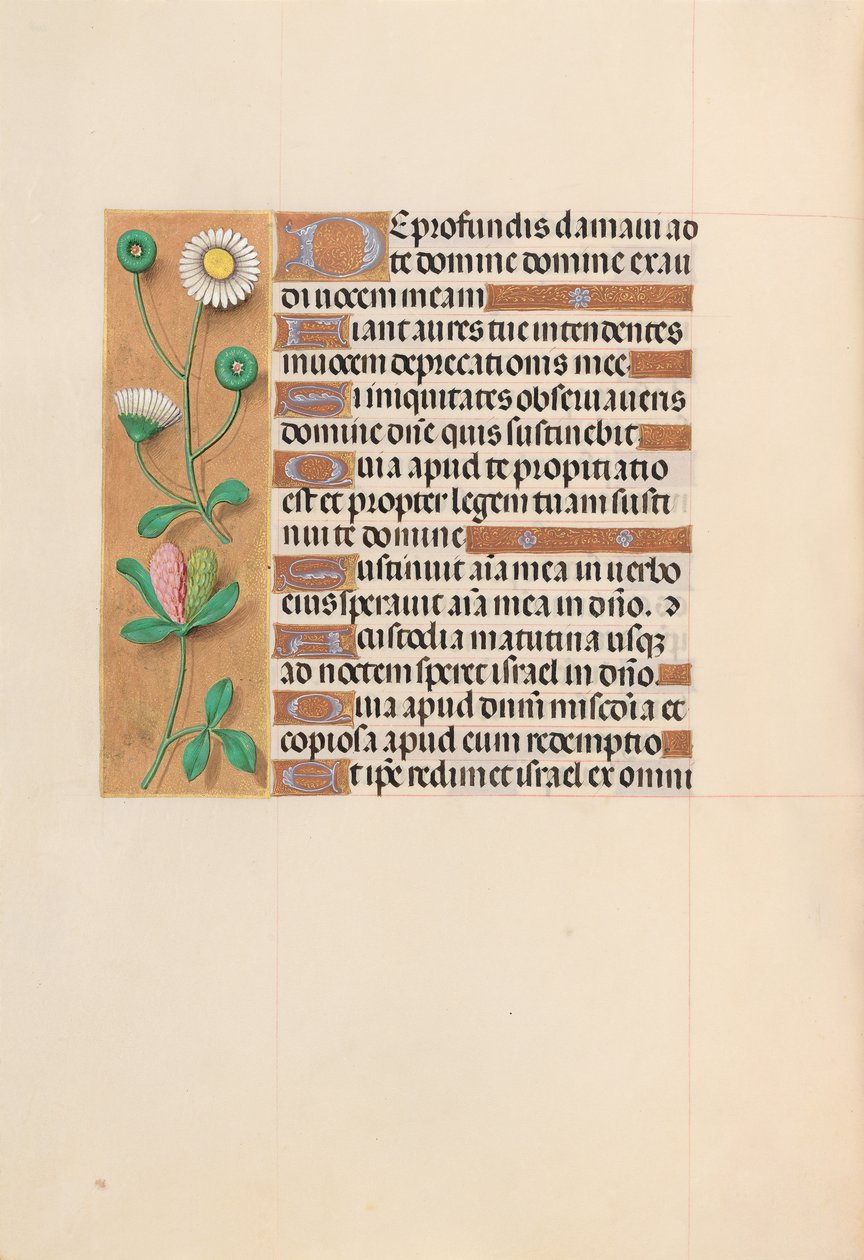 De profundis clamavi ad
te domine domine exau
di vocem meam
Fiant aures tue intendentes
in vocem deprecationis mee
Si iniquitates observaveris
domine dñe quis sustinebit
Quia apud te propitiatio
est et propter legem tuam susti
nui te domine
Sustinuit aĩa mea in verbo
eius speravit aĩa mea in dño.
A custodia matutina usqꝫ
ad noctem speret israel in dño.
Quia apud dnm̃ miscd̃ia et
copiosa apud eum redemptio
Et ip̃e redimet israel ex omni